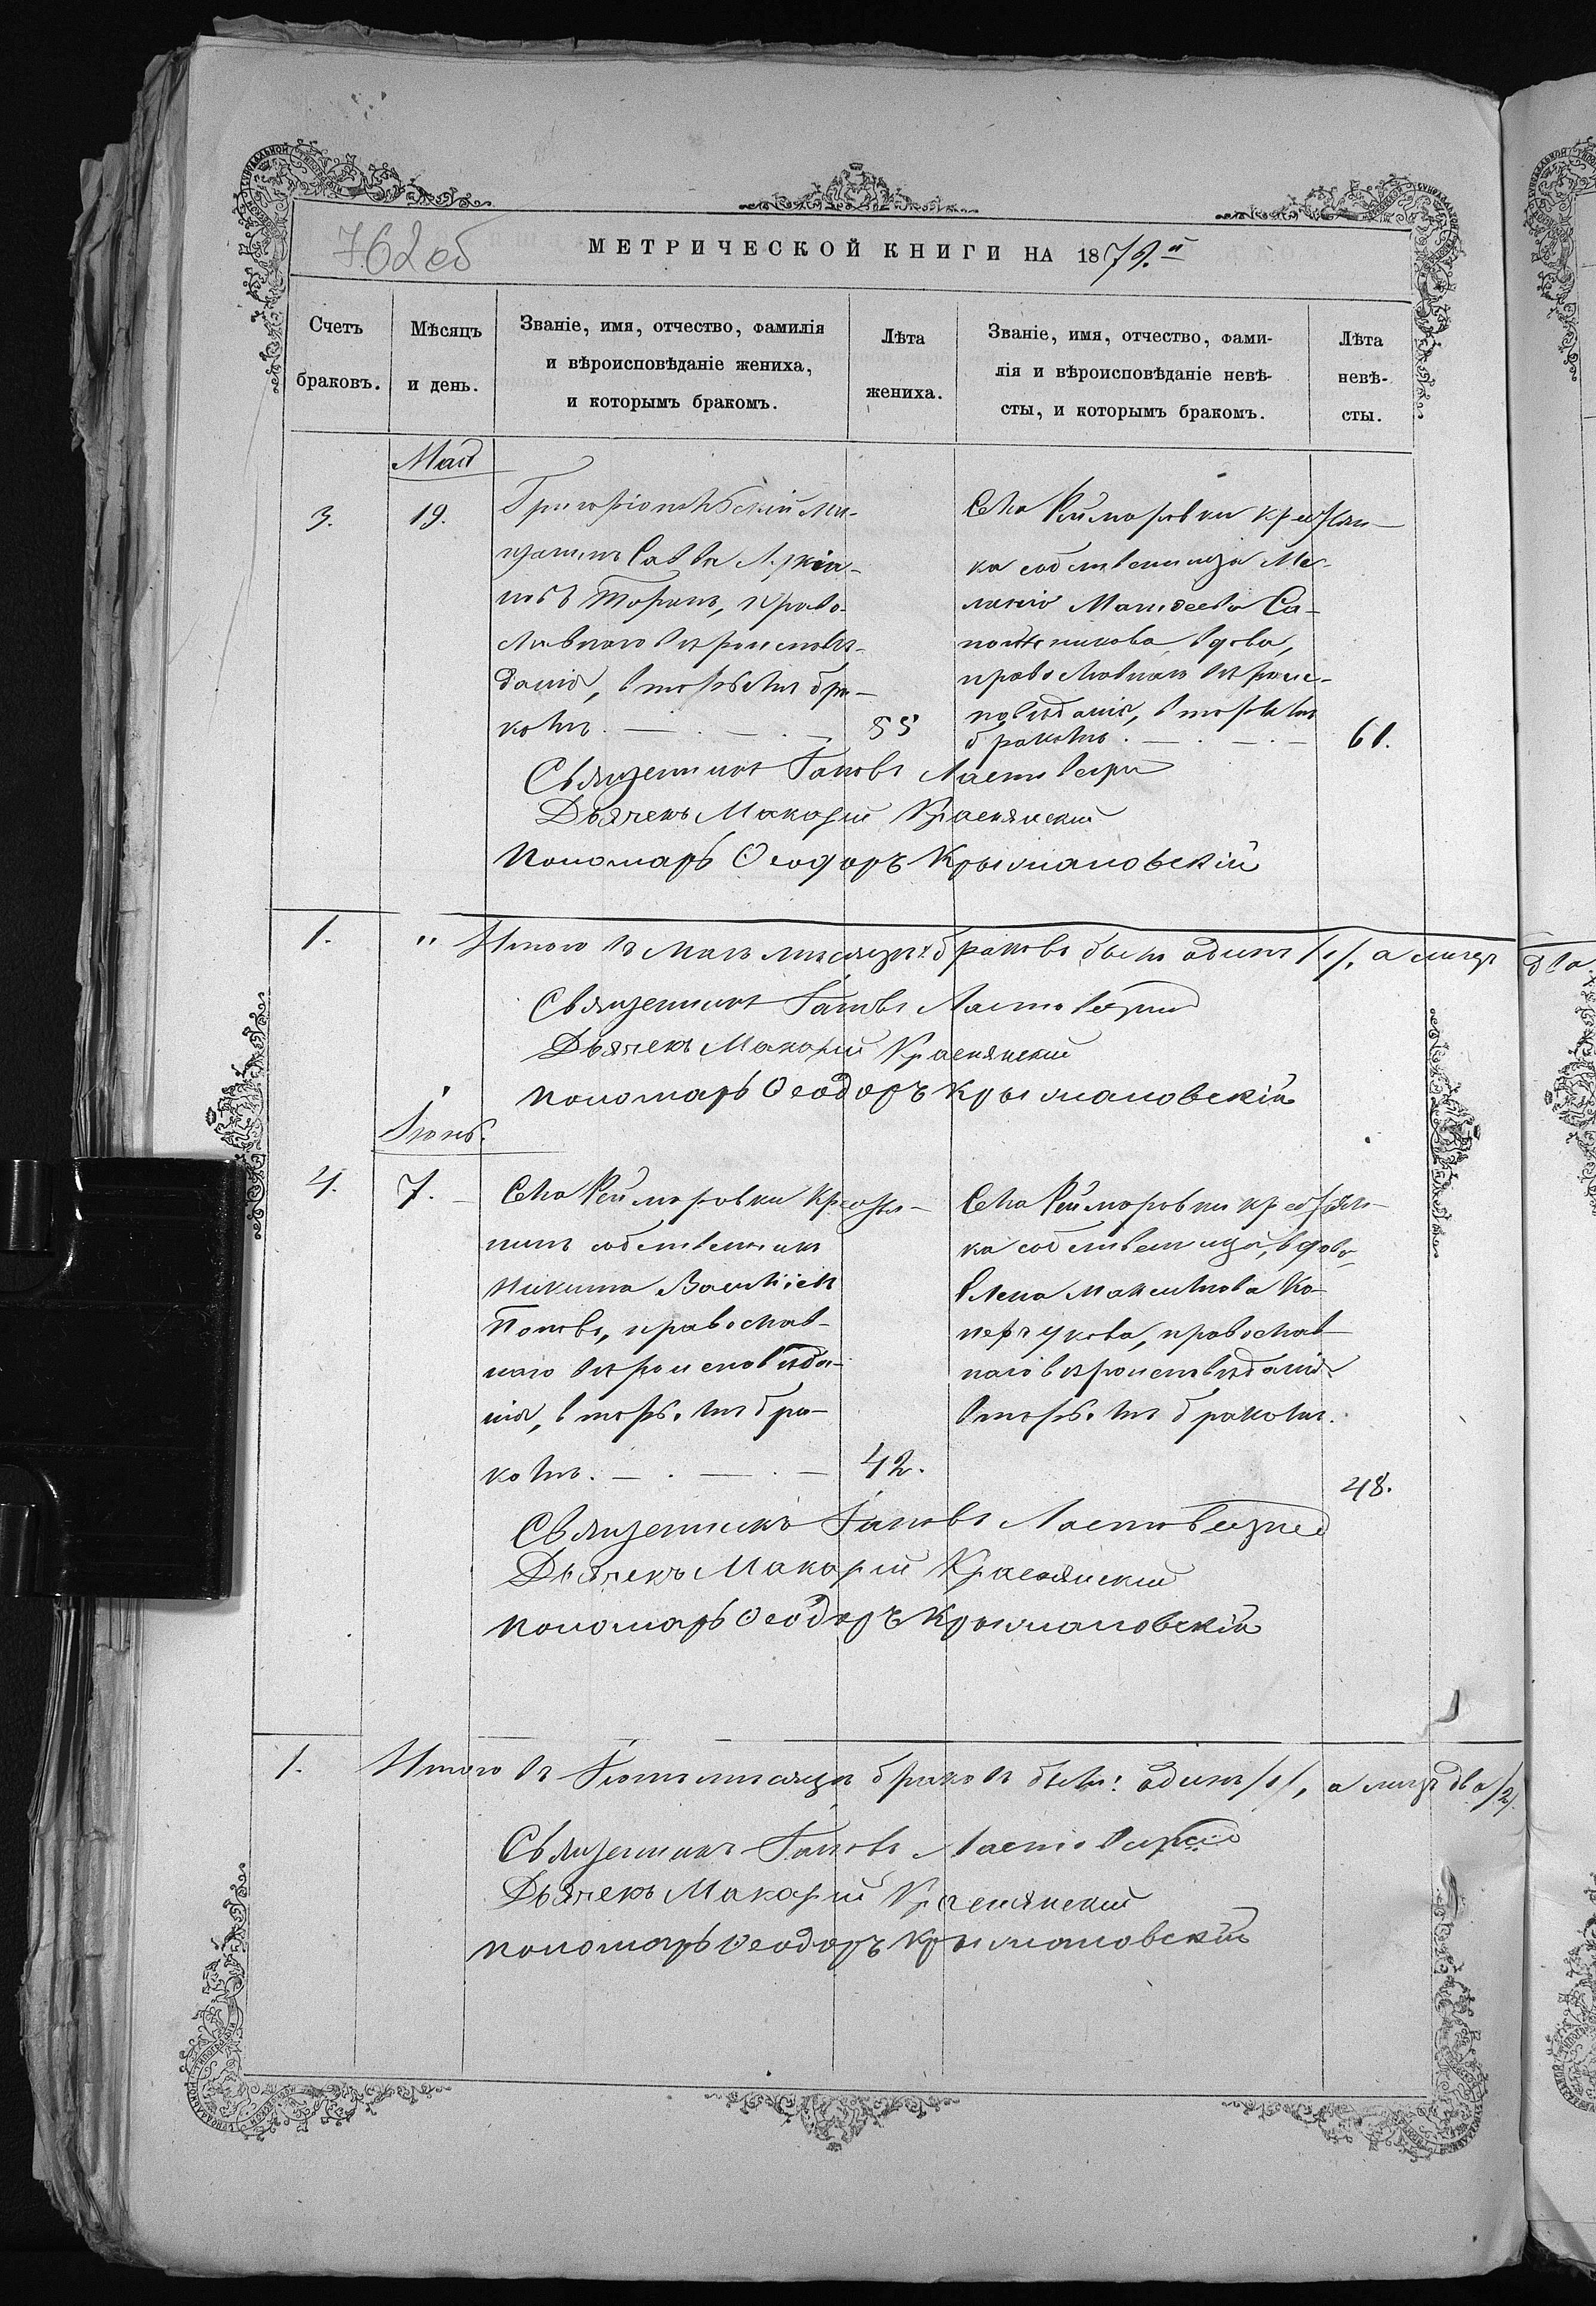 762 об
МЕТРИЧЕСКОЙ КНИГИ НА 1879.й
Счетъ браковъ.
Мѣсяцъ и день.
Званіе, имя, отчество, фамилія
и вѣроисповѣданіе жениха,
и которымъ бракомъ.
Лѣта жениха.
Званіе, имя, отчество, фами-
лія и вѣроисповѣданіе невѣ-
сты, и которымъ бракомъ.
Лѣта невѣ-
сты.
Май
3.
19.
Григоріопольскій мѣ-
щанинъ Савва
Торанъ, право-
славнаго вѣроисповѣ-
данія, вторымъ бра-
комъ.
55
Села Реймаровки крестьян-
ка собственница Ме-
ланія Матѳеева Са-
пожникова, вдова,
православнаго вѣроис-
повѣданія, вторымъ
бракомъ.
61.
Священникъ Іаковъ
Дьячекъ Макарій Краснянскій
Пономарь Ѳеодоръ Крыжановскій
1.
" Итого въ маѣ мѣсяцѣ браковъ было одинъ /1/, а лицъ два
Священникъ Іаковъ
Дьячекъ Макарій Краснянскій
Пономарь Ѳеодоръ Крыжановскій
Іюнь.
4.
7.
Села Реймаровки крестья-
нинъ собственникъ
Никита Васильевъ
Поповъ, православ-
наго вѣроисповѣда-
нія, вторымъ бра-
комъ.
42.
Села Реймаровки крестьян-
ка собственница, вдова
Елена Максимова Ко-
православ-
наго вѣроисповѣданія
вторымъ бракомъ.
48.
Священникъ Іаковъ
Дьячекъ Макарій Краснянскій
Пономарь Ѳеодоръ Крыжановскій
1.
Итого въ Іюнѣ мѣсяцѣ браковъ было: одинъ /1/, а лицъ два /2/.
Священникъ Іаковъ
Дьячекъ Макарій Краснянскій
Пономарь Ѳеодоръ Крыжановскій